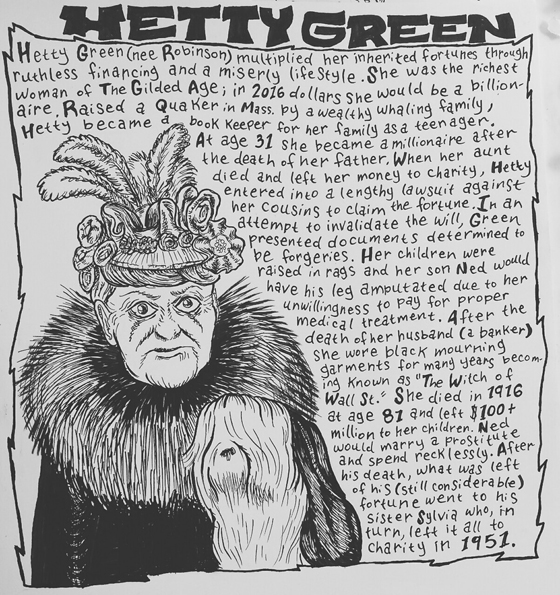 HETTY GREEN
Hetty Green (nee Robinson) multiplied her inherited fortunes through
ruthless financing and a miserly lifestyle. She was the richest
woman of The Gilded Age; in 2016 dollars she would be a billion-
aire. Raised a Quaker in Mass. by a wealthy whaling family,
Hetty became a book keeper for her family as a teenager.
At age 31 she became a millionaire after
the death of her father. When her aunt
died and left her money to charity, Hetty
entered into a lengthy lawsuit against
her cousins to claim the fortune. In an
attempt to invalidate the will, Green
presented documents determined to
be forgeries. Her children were
raised in rags and her son Ned would
have his leg amputated due to her
unwillingness to pay for proper
medical treatment. After the
death of her husband (a banker)
she wore black mourning
garments for many years becom-
ing known as "The Witch of
Wall St." She died in 1916
at age 81 and left $100+
million to her children. Ned
would marry a prostitute
and spend recklessly. After
his death, what was left
of his (still considerable)
fortune went to his
sister Sylvia who, in
turn, left it all to
charity in 1951.